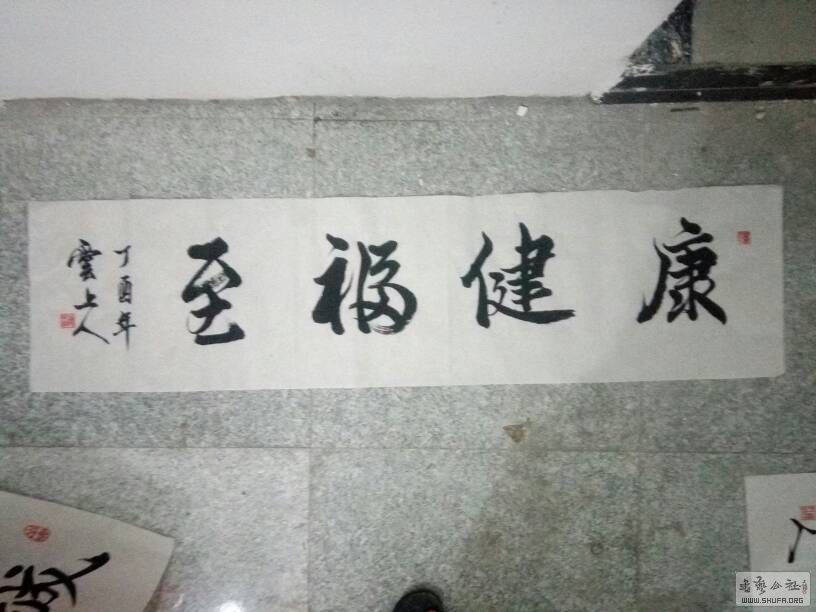 康健福至
丁酉年
雲上人
書藝公社
WWW.SHUFA.ORG